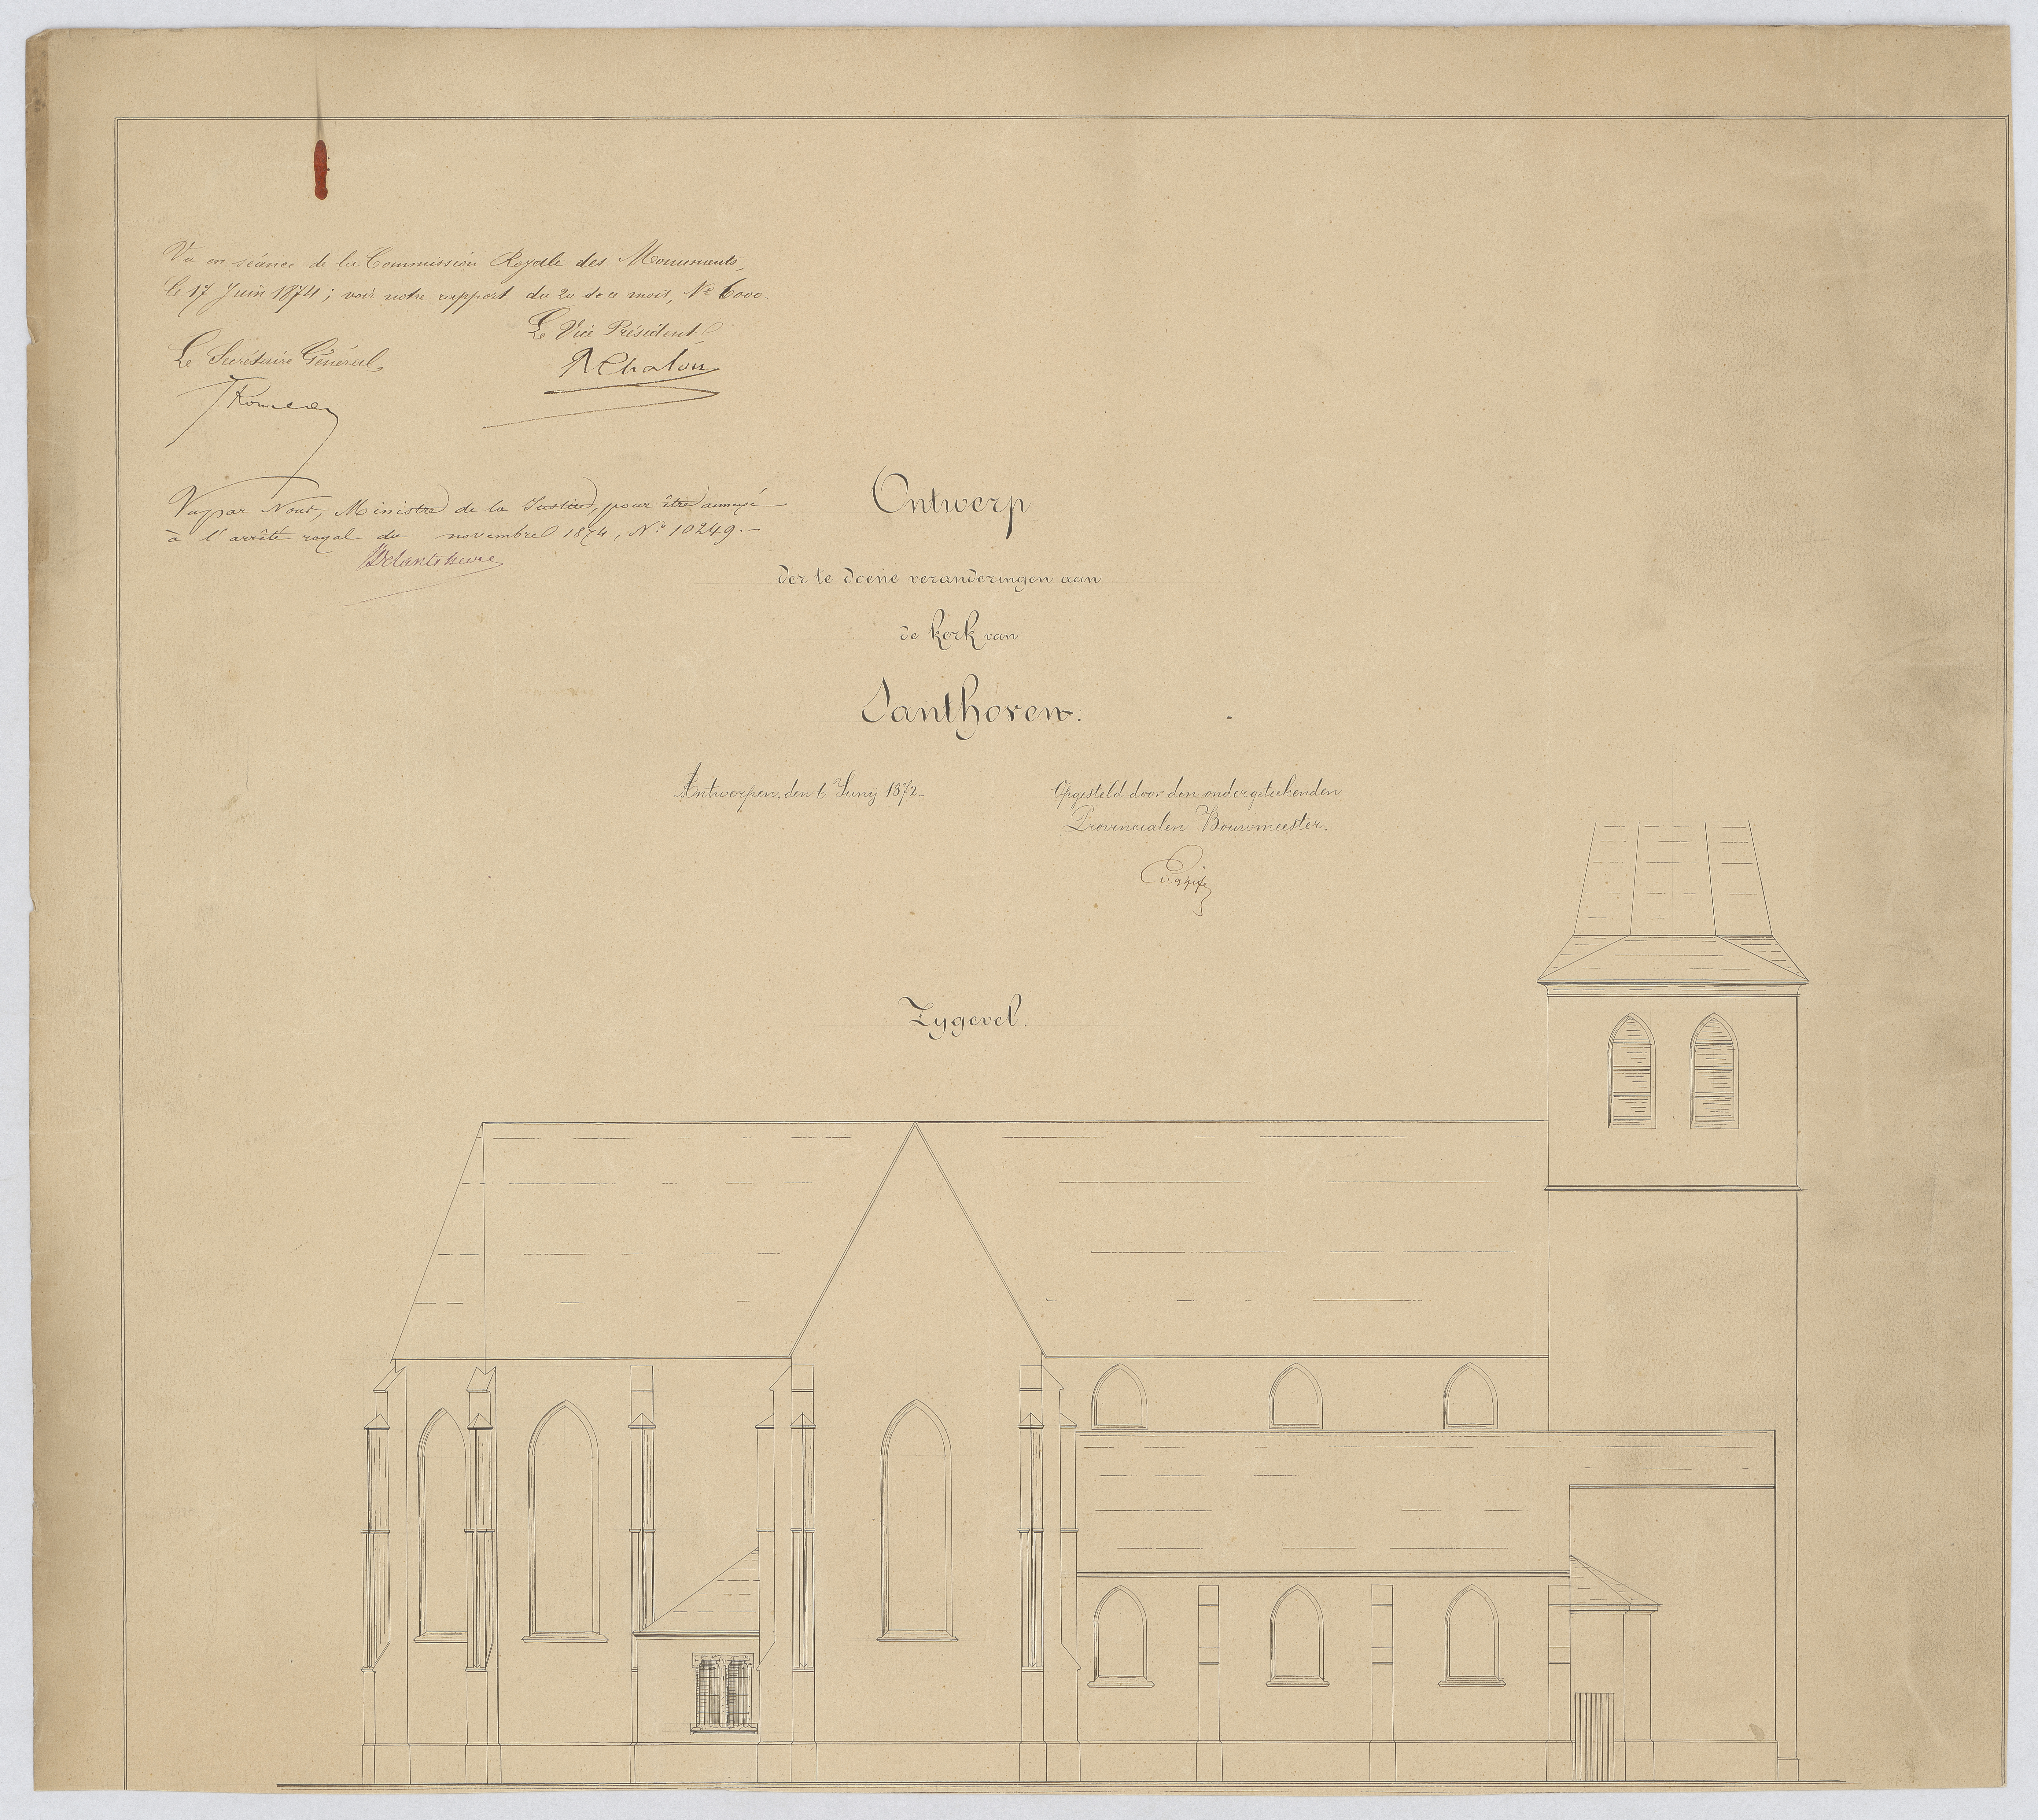 Vu en séance de la Commission Royale des Monuments,
le 17 Juin 1874; voir notre rapport du 20 de ce mois, N° 6000.
Le Vice Président,
RChalon
Le Secrétaire Général,
J Rousseau
Vu par Nous, Ministre de la Justice, pour être annexé
à l'arrêté royal du novembre 1874, N° 10249.-
Ontwerp
der te doene veranderingen aan
de kerk van
Santhoven.
Antwerpen, den 6 Juny 1872.
Opgesteld door den ondergeteekenden
Provincialen Bouwmeester.
Zygevel.